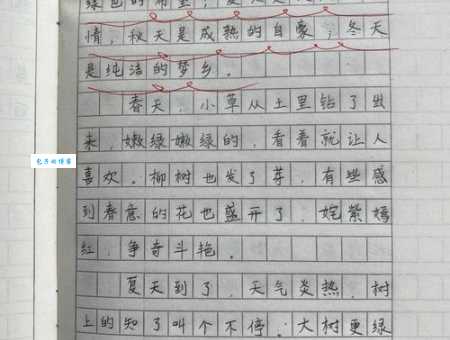 绿色的希望，夏天是
情，秋天是成熟的自豪，冬天
是纯洁的梦乡。
春天，小草从土里钻了出
来，嫩绿嫩绿的，看着就让人
喜欢。柳树也发了芽，有些感
到春意的花也盛开了，姹紫嫣
红，争奇斗艳。
夏天到了，天气炎热，树
上的知了叫个不停。大树更绿